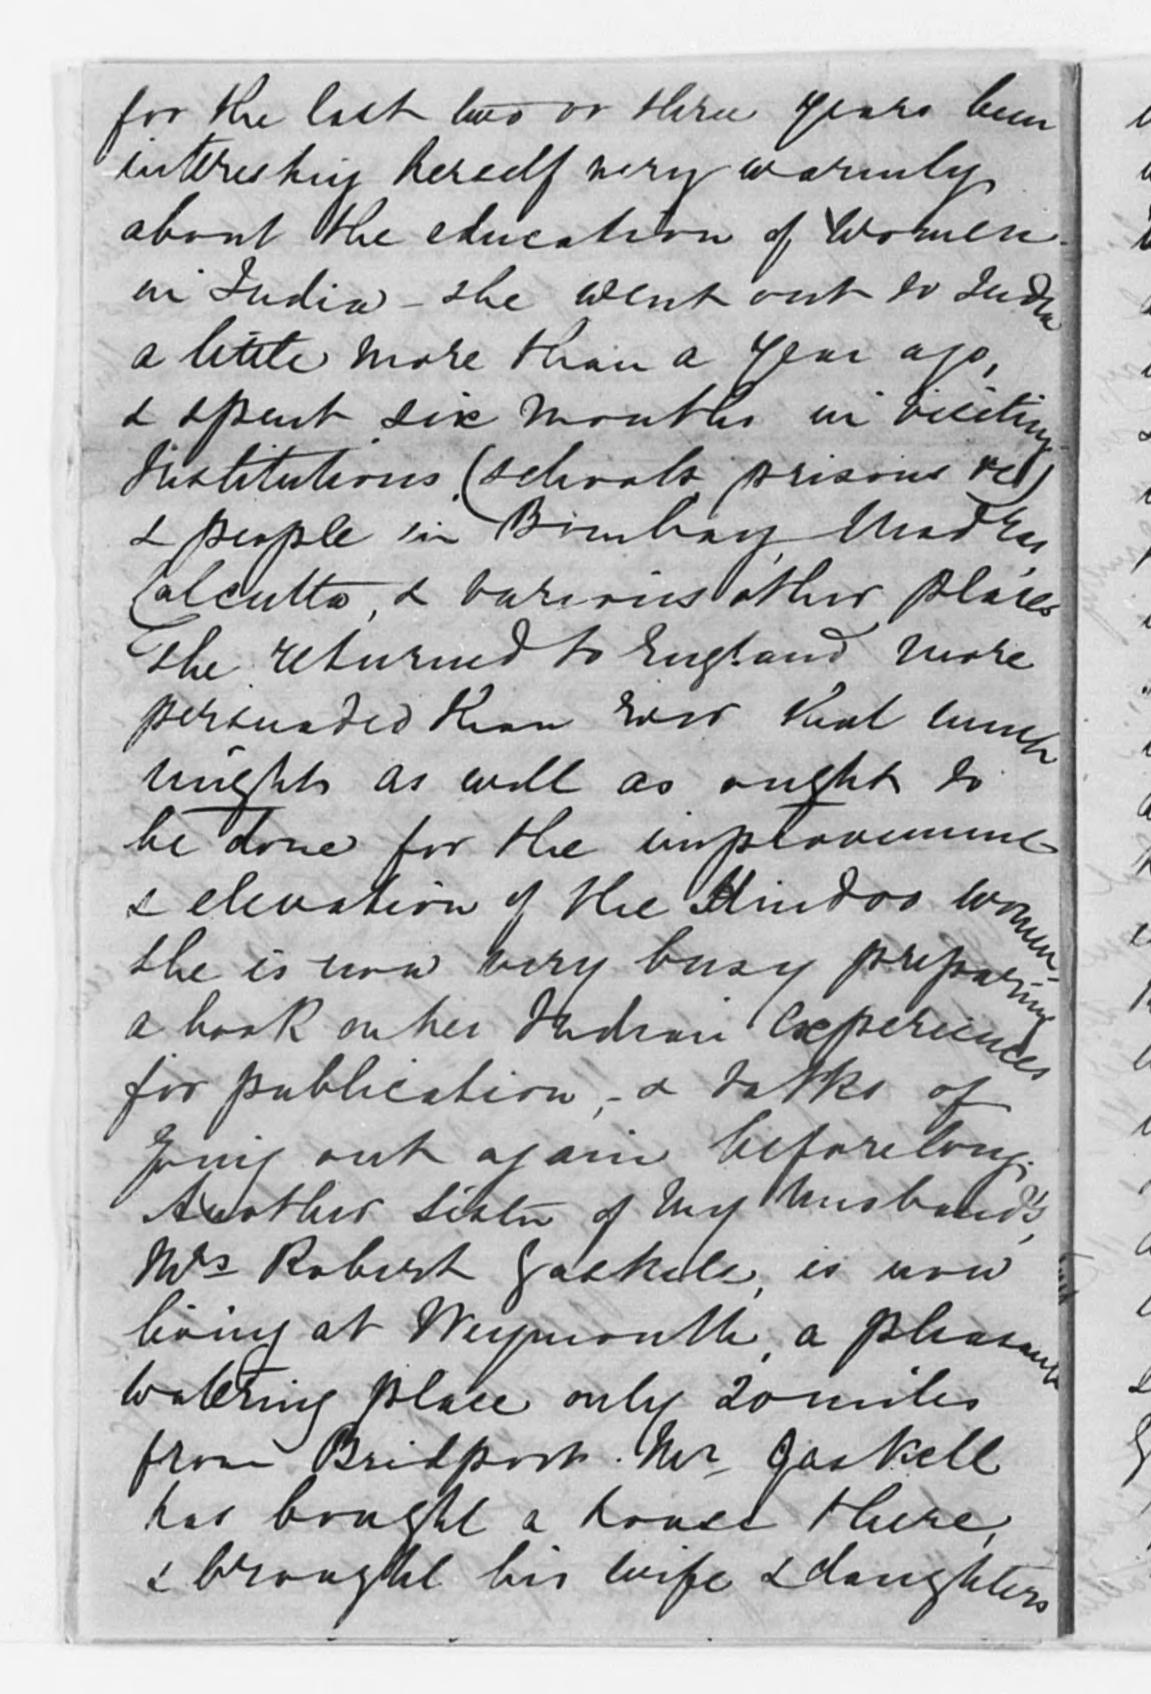 for the last two or three years been
interesting herself very warmly
about the education of Women
in India - she went out to India
a little more than a year ago,
& spent six months in visiting
Institutions (schools prisons &c)
& people in Bombay, Madras,
Calcutta, & various other places
She returned to England more
persuaded than ever that much
might as well as ought to
be done for the improvement
& elevation of the Hindoo women -
she is now very busy preparing
a book on her Indian Experiences
for publication, - & talks of
going out again before long.
Another sister of my husband's,
Mrs Robert Gaskell, is now
living at Weymouth, a pleasant
watering place only 20 miles
from Bridport. Mr. Gaskell
has bought a house there,
& brought his wife & daughters